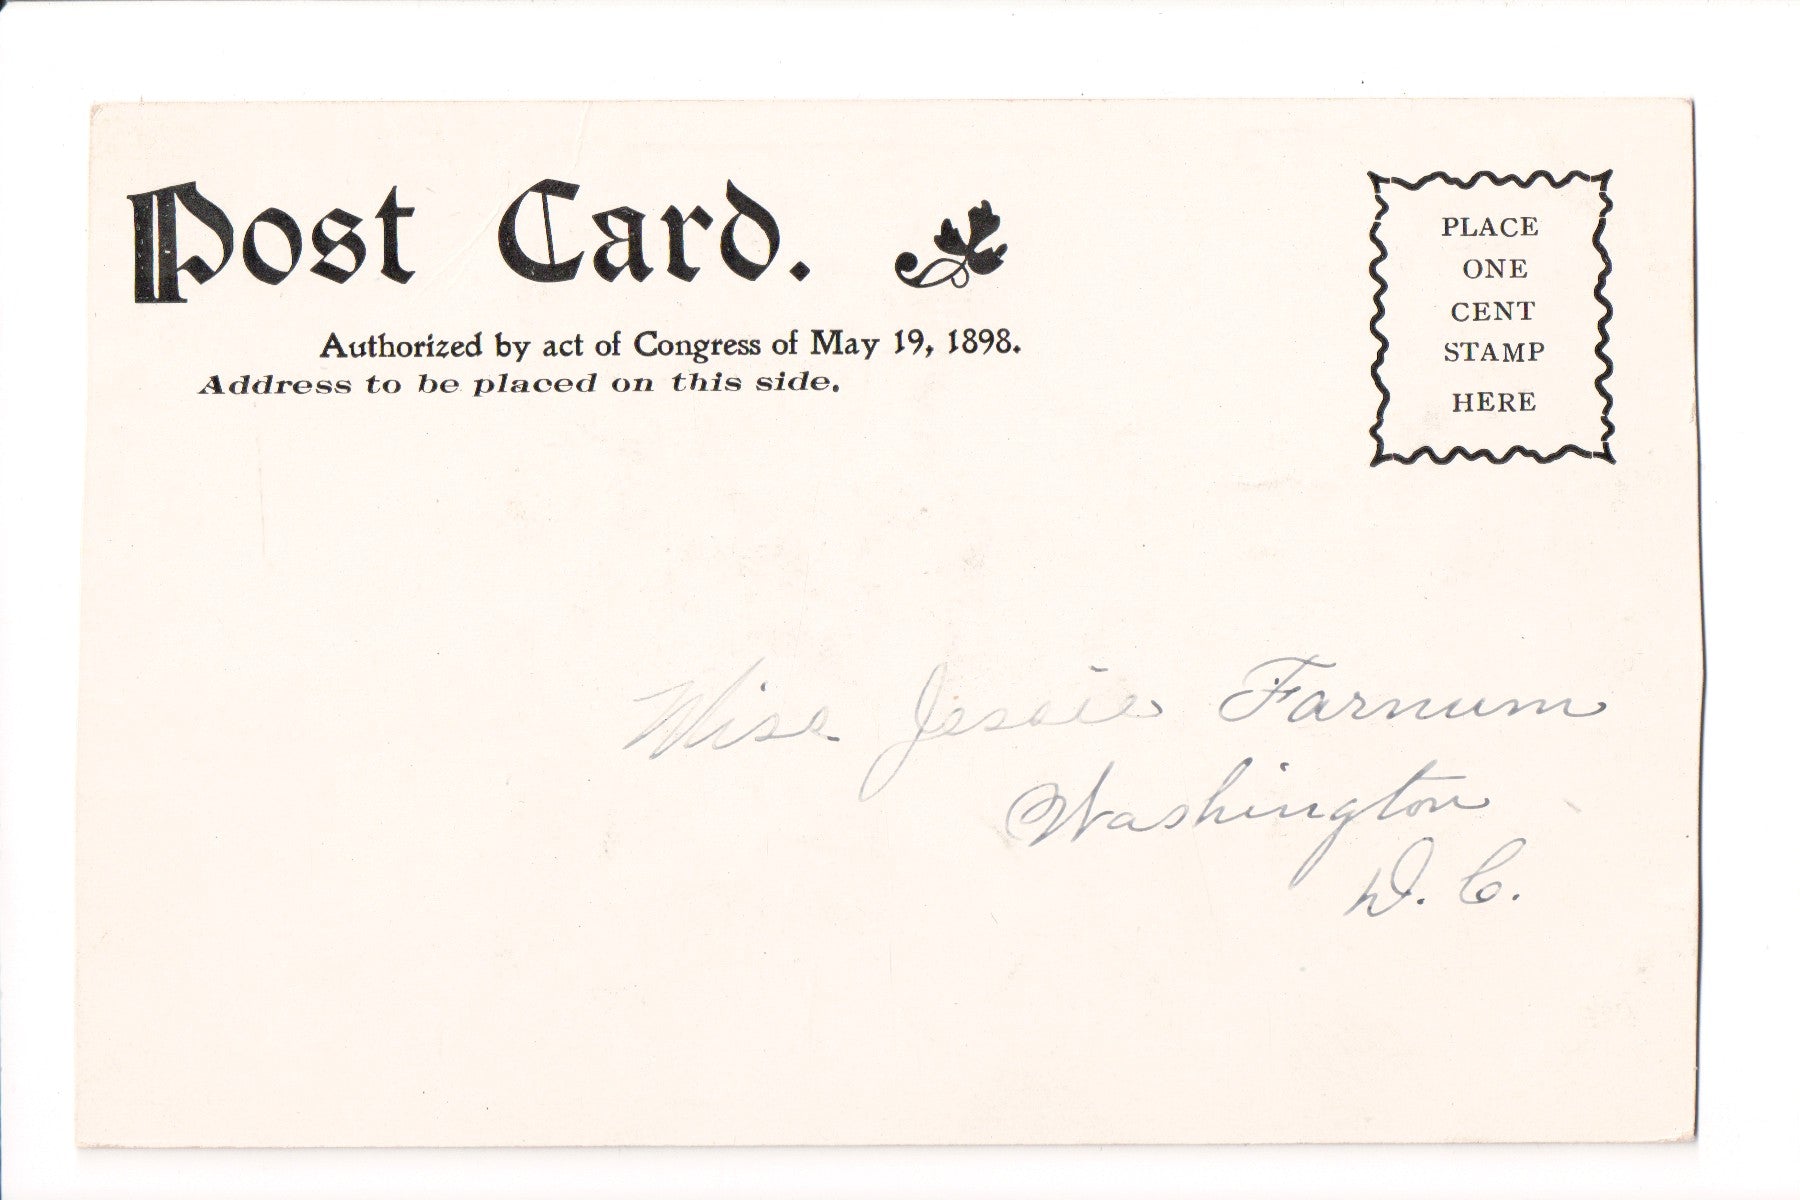 Post Card.
Authorized by act of Congress of May 19, 1898.
Address to be placed on this side.
PLACE
ONE
CENT
STAMP
HERE
Miss Jessie Farnum
Washington
D. C.